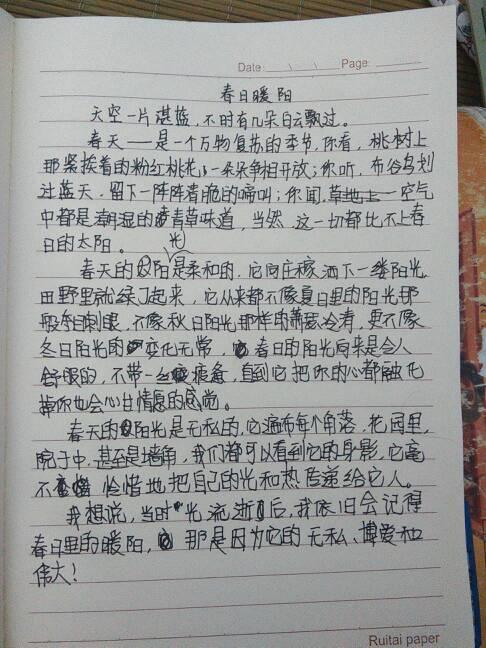 Date: Page:
春日暖阳
天空一片湛蓝，不时有几朵白云飘过。
春天——是一个万物复苏的季节，你看，桃树上
那紧挨着的粉红桃花，一朵朵争相开放；你听，布谷鸟划
过蓝天，留下一阵阵清脆的啼叫；你闻，空气
中都是潮湿的青草味道，当然，这一切都比不上春
日的太阳。
春天的阳光是柔和的，它向庄稼洒下一缕阳光，
田野里就绿了起来，它从来都不像夏日里的阳光那
般刺眼，不像秋日阳光那样的萧瑟冷涛，更不像
冬日阳光的变化无常，春日的阳光向来是令人
舒服的，不带一丝疲惫，直到它把你的心都融化
掉你也会心甘情愿的感觉。
春天的阳光是无私的，它遍布每个角落，花园里，
院子中，甚至是墙角，我们都可以看到它的身影，它毫
不吝惜地把自己的光和热传递给它人。
我想说，当时光流逝后，我依旧会记得
春日里的暖阳，那是因为它的无私、博爱和
伟大！
Ruitai paper